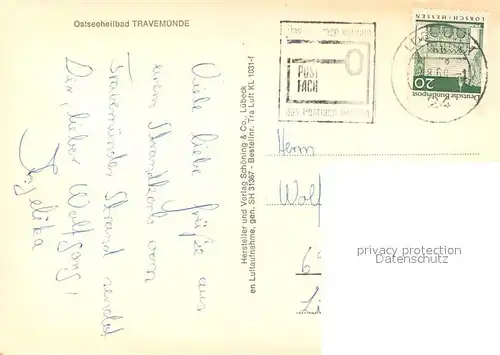 Ostseeheilbad TRAVEMÜNDE
Viele liebe Grüße aus
einem Strandkorb vom
Travemünder Strand sendet
Dir, lieber Wolfgang,
Angelika
Hersteller und Verlag Schöning & Co., Lübeck
en Luftaufnahme, gen. SH 31367 - Bestellnr. Tra Luft KL 1031-f
POST
FACH
LORSCH/HESSEN
Deutsche Bundespost
20
Herrn
Wolf
6
privacy protection
AnsichtskartenLexikon.de